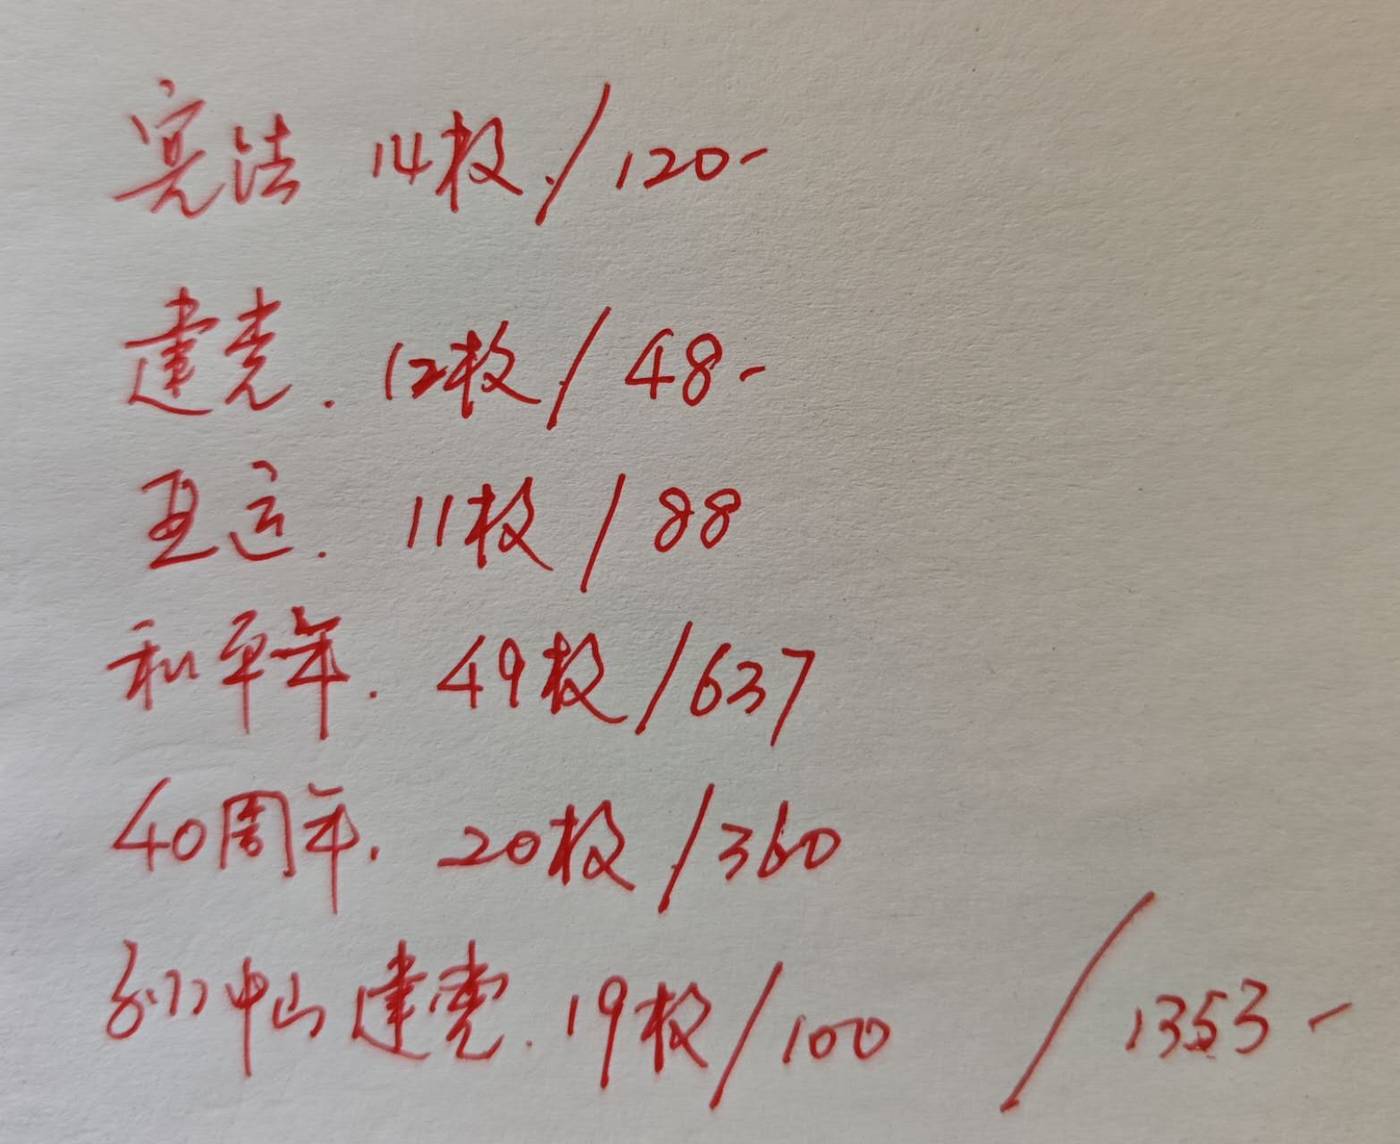 宪法 14枚./120-
建党. 12枚/48-
亚运. 11枚/88
和平年. 49枚/637
40周年. 20枚/360
孙中山建党. 19枚/100 /1353-